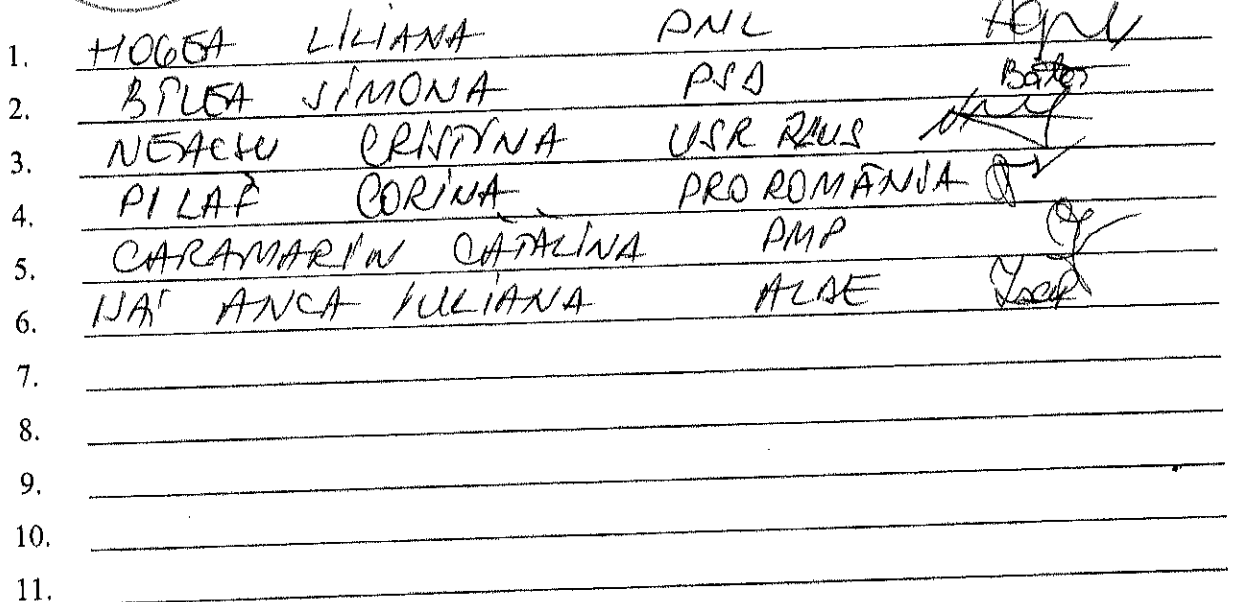 1. HOGEA LILIANA PNL
2. BÎLEA SIMONA PSD
3. NEACSU CRISTINA USR PLUS
4. PILAF CORINA PRO ROMÂNIA
5. CARAMARIN CĂTĂLINA PMP
6. ANCA IULIANA ALDE
7.
8.
9.
10.
11.